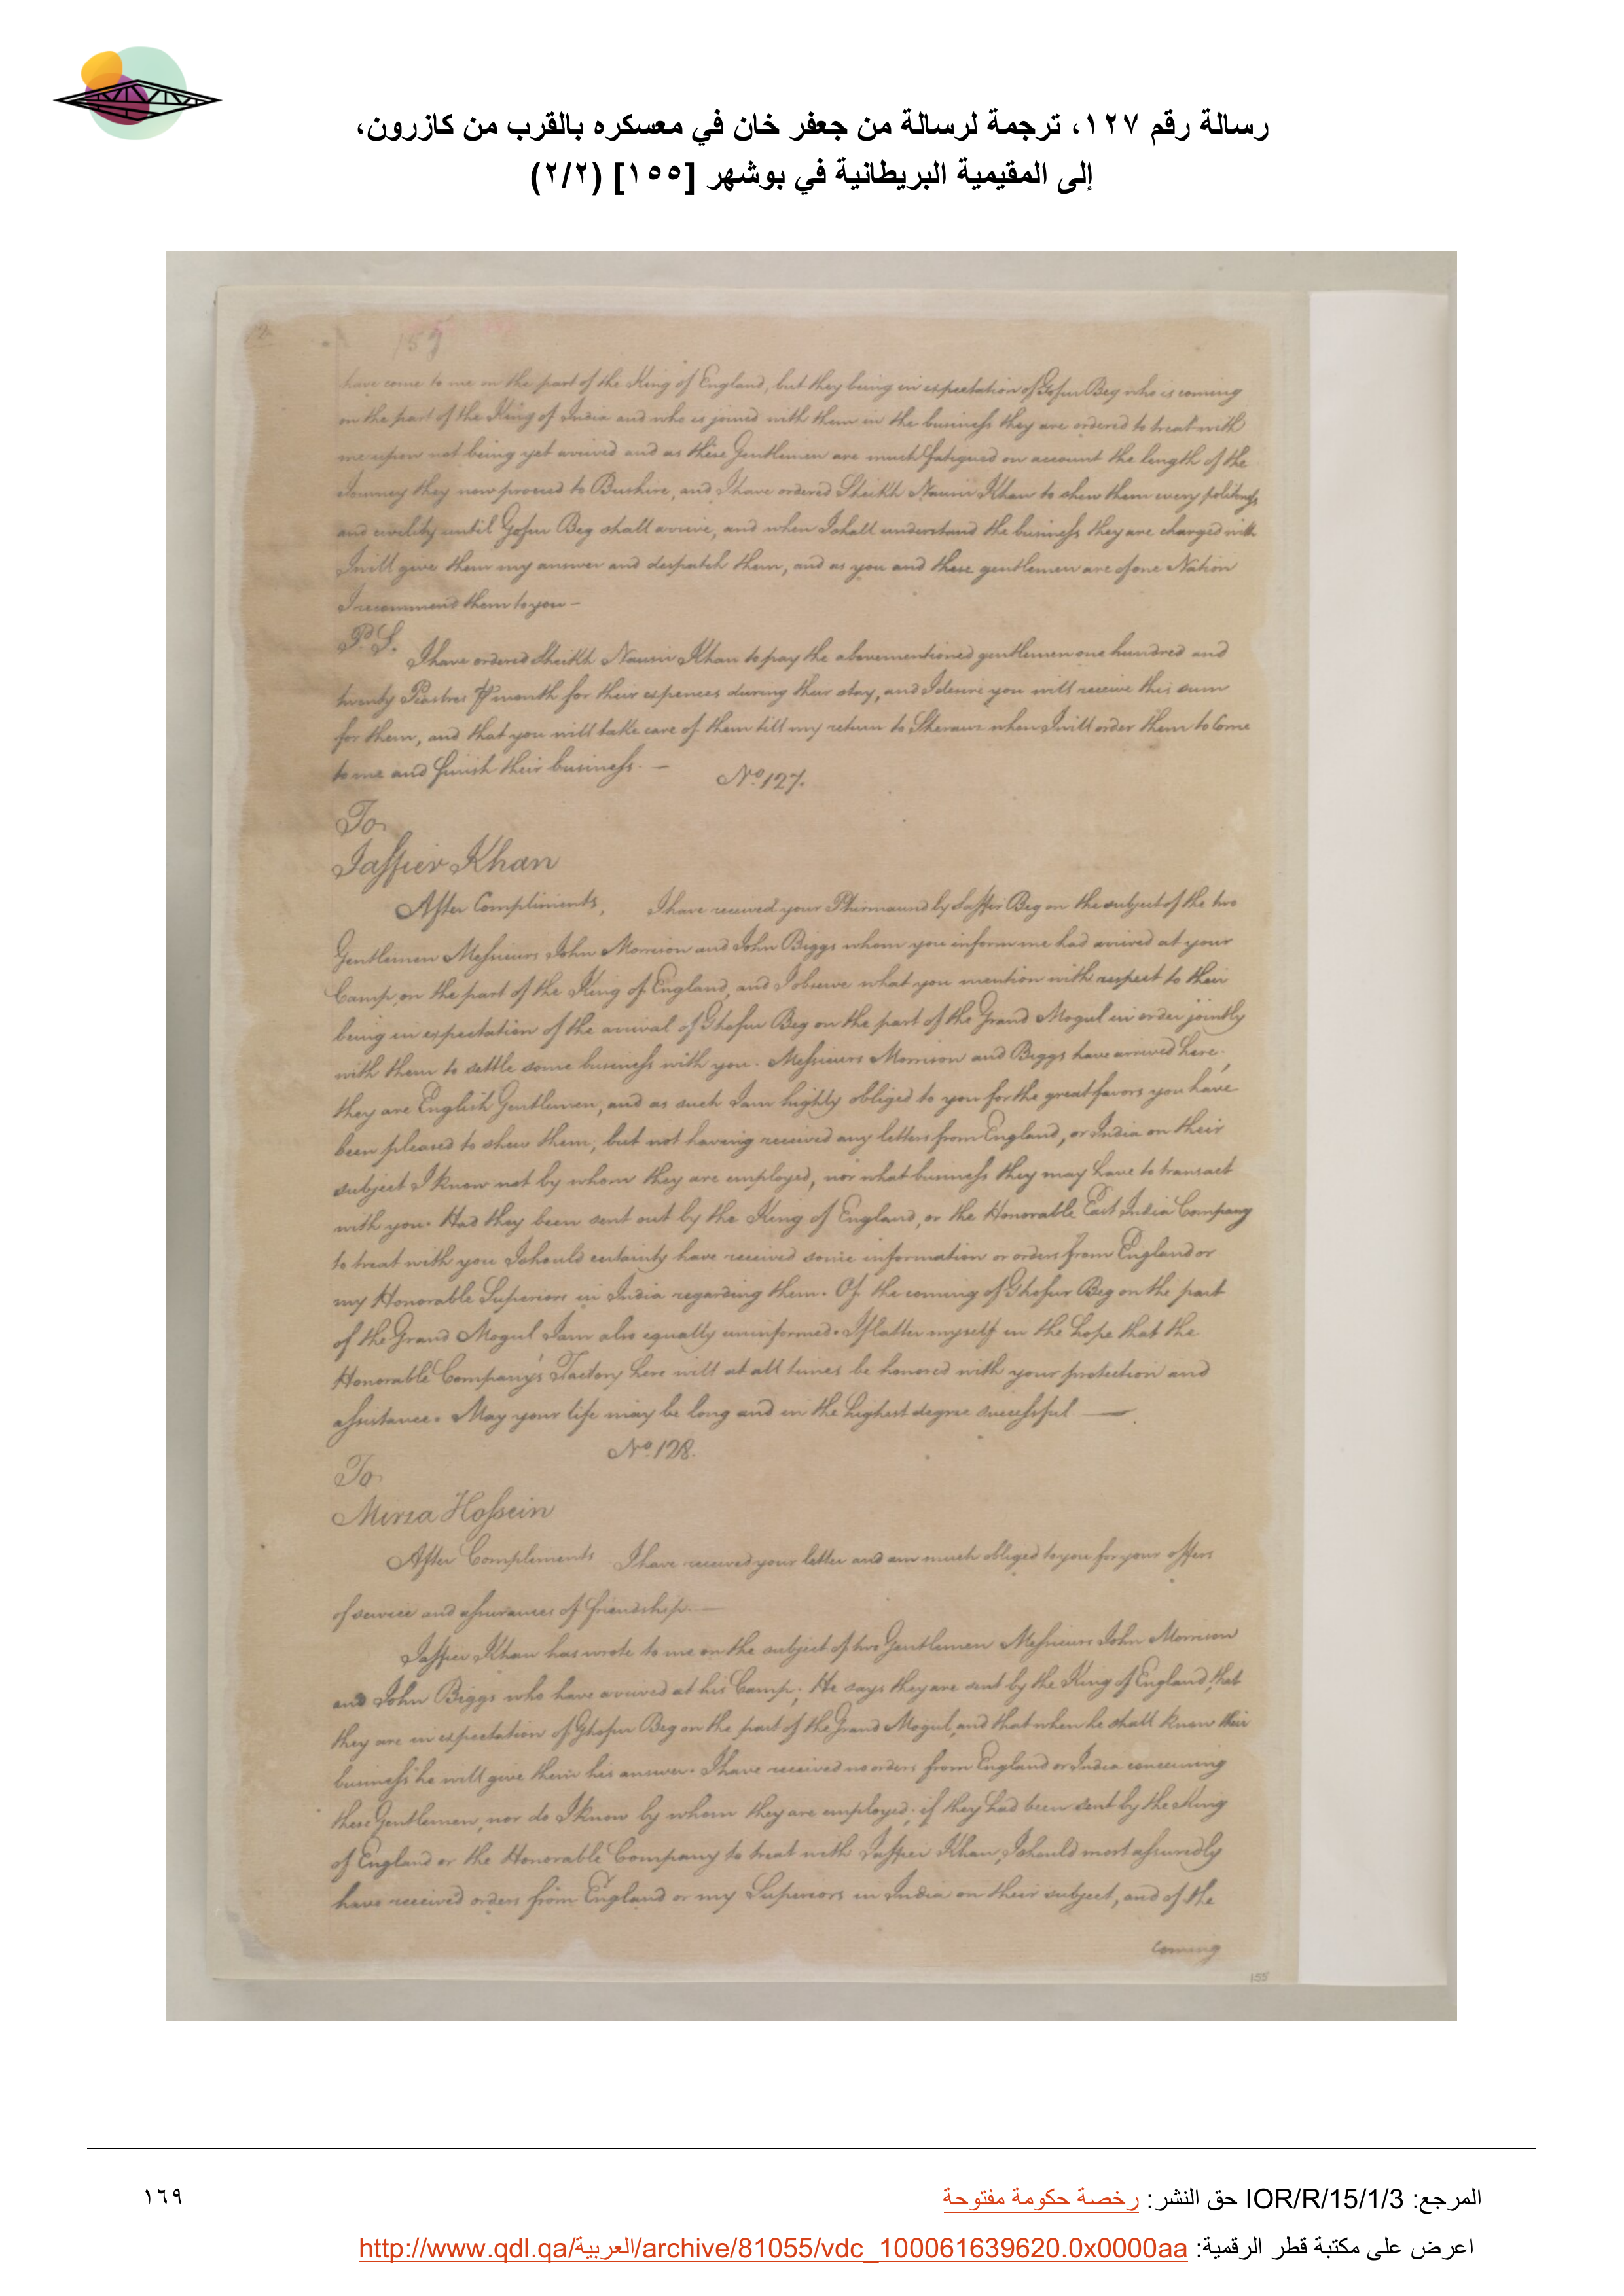 رسالة رقم ١٢٧، ترجمة لرسالة من جعفر خان في معسكره بالقرب من كازرون،
إلى المقيمية البريطانية في بوشهر [١٥٥] (٢/٢)
159
have come to me on the part of the King of England, but they being in expectation of Gofur Beg who is coming
on the part of the King of India and who is joined with them in the business they are ordered to treat with
me upon not being yet arrived and as these Gentlemen are much fatigued on account the length of the
Journey they now proceed to Bushire, and I have ordered Sheikh Nausir Khan to shew them every politeness
and civility until Gofur Beg shall arrive, and when I shall understand the business they are charged with
I will give them my answer and despatch them, and as you and these gentlemen are of one Nation
I recommend them to you —
P.S. I have ordered Sheikh Nausir Khan to pay the abovementioned gentlemen one hundred and
twenty Piastres ⅌ month for their expences during their stay, and I desire you will receive this sum
for them, and that you will take care of them till my return to Sheraus when I will order them to Come
to me and finish their business. —
No. 127.
To
Jaffier Khan
After Compliments, I have received your Phirmaund by Jaffir Beg on the subject of the two
Gentlemen Messieurs John Morrison and John Biggs whom you inform me had arrived at your
Camp, on the part of the King of England, and I observe what you mention with respect to their
being in expectation of the arrival of Ghofur Beg on the part of the Grand Mogul in order jointly
with them to settle some business with you. Messieurs Morrison and Biggs have arrived here,
they are English Gentlemen, and as such I am highly obliged to you for the great favors you have
been pleased to shew them, but not having received any letters from England, or India on their
subject I know not by whom they are employed, nor what business they may have to transact
with you. Had they been sent out by the King of England, or the Honorable East India Company
to treat with you I should certainly have received some information or orders from England or
my Honorable Superiors in India regarding them. Of the coming of Ghofur Beg on the part
of the Grand Mogul I am also equally uninformed. I flatter myself in the hope that the
Honorable Company's Factory here will at all times be honored with your protection and
assistance. May your life may be long and in the highest degree successful —
No. 128.
To
Mirza Hossein
After Complements I have received your letter and am much obliged to you for your offers
of service and assurances of friendship. —
Jaffier Khan has wrote to me on the subject of two Gentlemen Messieurs John Morrison
and John Biggs who have arrived at his Camp; He says they are sent by the King of England, that
they are in expectation of Ghofur Beg on the part of the Grand Mogul, and that when he shall know their
business he will give them his answer. I have received no orders from England or India concerning
these Gentlemen, nor do I know by whom they are employed; if they had been sent by the King
of England or the Honorable Company to treat with Jaffier Khan, I should most assuredly
have received orders from England or my Superiors in India on their subject, and of the
coming
155
المرجع: IOR/R/15/1/3 حق النشر: رخصة حكومة مفتوحة
١٦٩
اعرض على مكتبة قطر الرقمية: http://www.qdl.qa/العربية/archive/81055/vdc_100061639620.0x0000aa